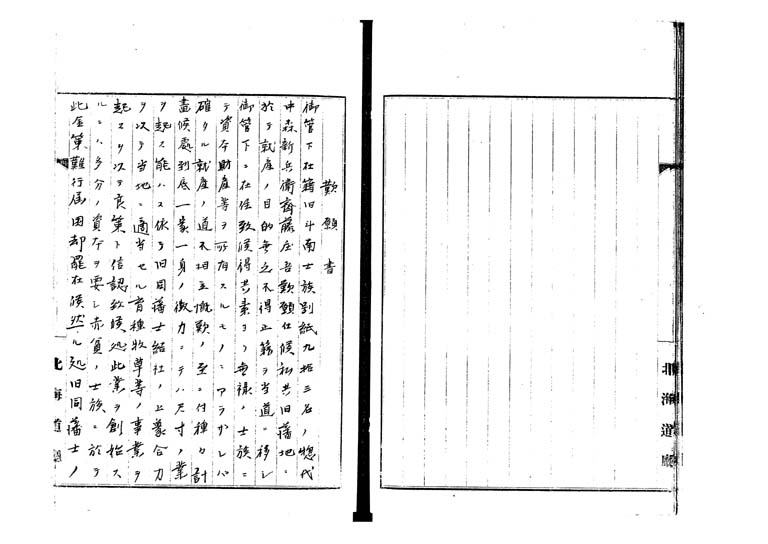 歎願書
御管下在籍旧斗南士族別紙九拾三名ノ惣代
中森新兵衛齋藤庄吾歎願仕候私共旧藩地ニ
於テ就産ノ目的無之不得止籍ヲ当道ニ移シ
御管下ニ在住致候得共素ヨリ無禄ノ士族ニ
テ資本助産等ヲ所有スルモノニアラザレバ
確タル就産ノ道不相立慨歎ノ至ニ付種々計
畫候處到底一家一身ノ微力ニテハ尺寸ノ業
ヲ起ス能ハス依テ旧同藩士結社ノ上衆合力
ヲ以テ当地ニ適当セル育種牧草等ノ事業ヲ
起スヲ以テ良策ト信認致候処此業ヲ創始ス
ルニハ多分ノ資本ヲ要シ赤貧ノ士族ニ於テ
此金策難行届困却罷在候然ル処旧同藩士ノ
北海道廳
北海道廳